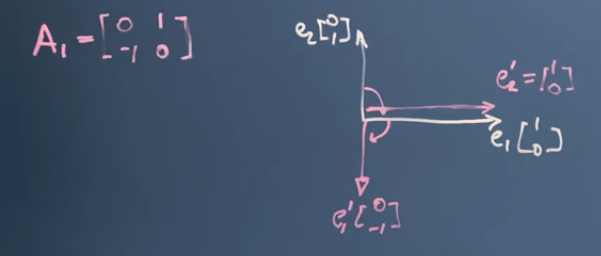 A₁ = [0 1
-1 0]
e₂ [0
1]
e₂' = [1
0]
e₁ [1
0]
e₁' [0
-1]